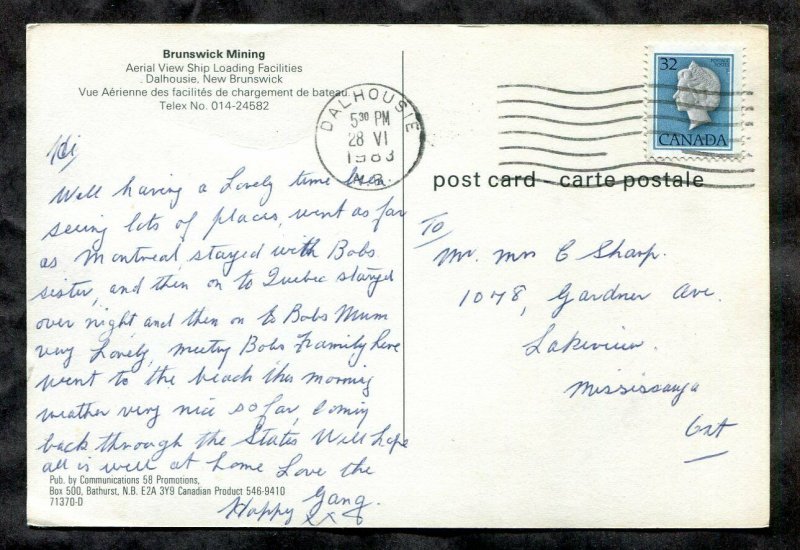 Brunswick Mining
Aerial View Ship Loading Facilities
Dalhousie, New Brunswick
Vue Aérienne des facilités de chargement de bateau.
Telex No. 014-24582
DALHOUSIE
5³⁰ PM
28 VI
1983
N.B.
32
POSTAGE
POSTES
CANADA
post card - carte postale
Hi
Well having a Lovely time been
seeing lots of places, went as far
as Montreal stayed with Bobs
sister, and then on to Quebec stayed
over night and then on to Bobs Mum
very Lovely, meeting Bobs Framily here
went to the beach this morning
weather very nice so far, Coming
back through the States Will hope
all is well at home Love the
Happy Gang.
xx
To
Mr. Mrs C Sharp.
1078, Gardner Ave.
Lakeview.
Mississauga
Ont
Pub. by Communications 58 Promotions,
Box 500, Bathurst, N.B. E2A 3Y9 Canadian Product 546-9410
71370-D